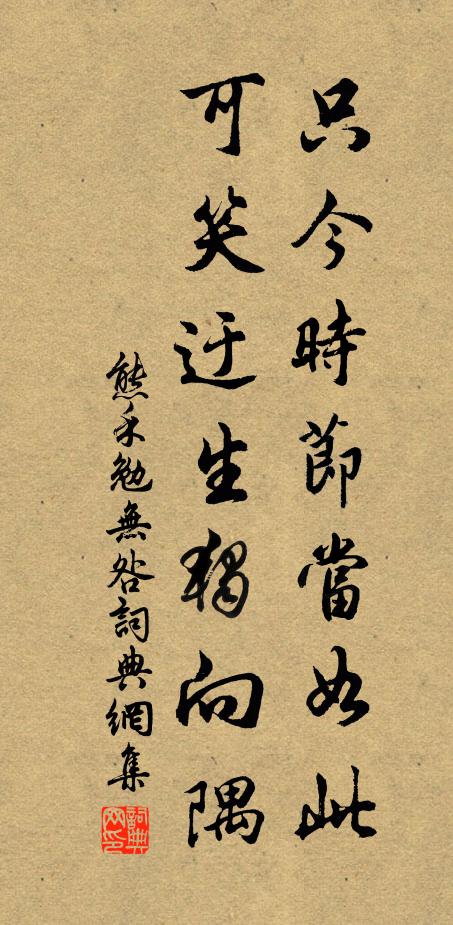 只今時節當如此
可笑迂生獨向隅
熊禾勉無咎詞典網集
詞典網印